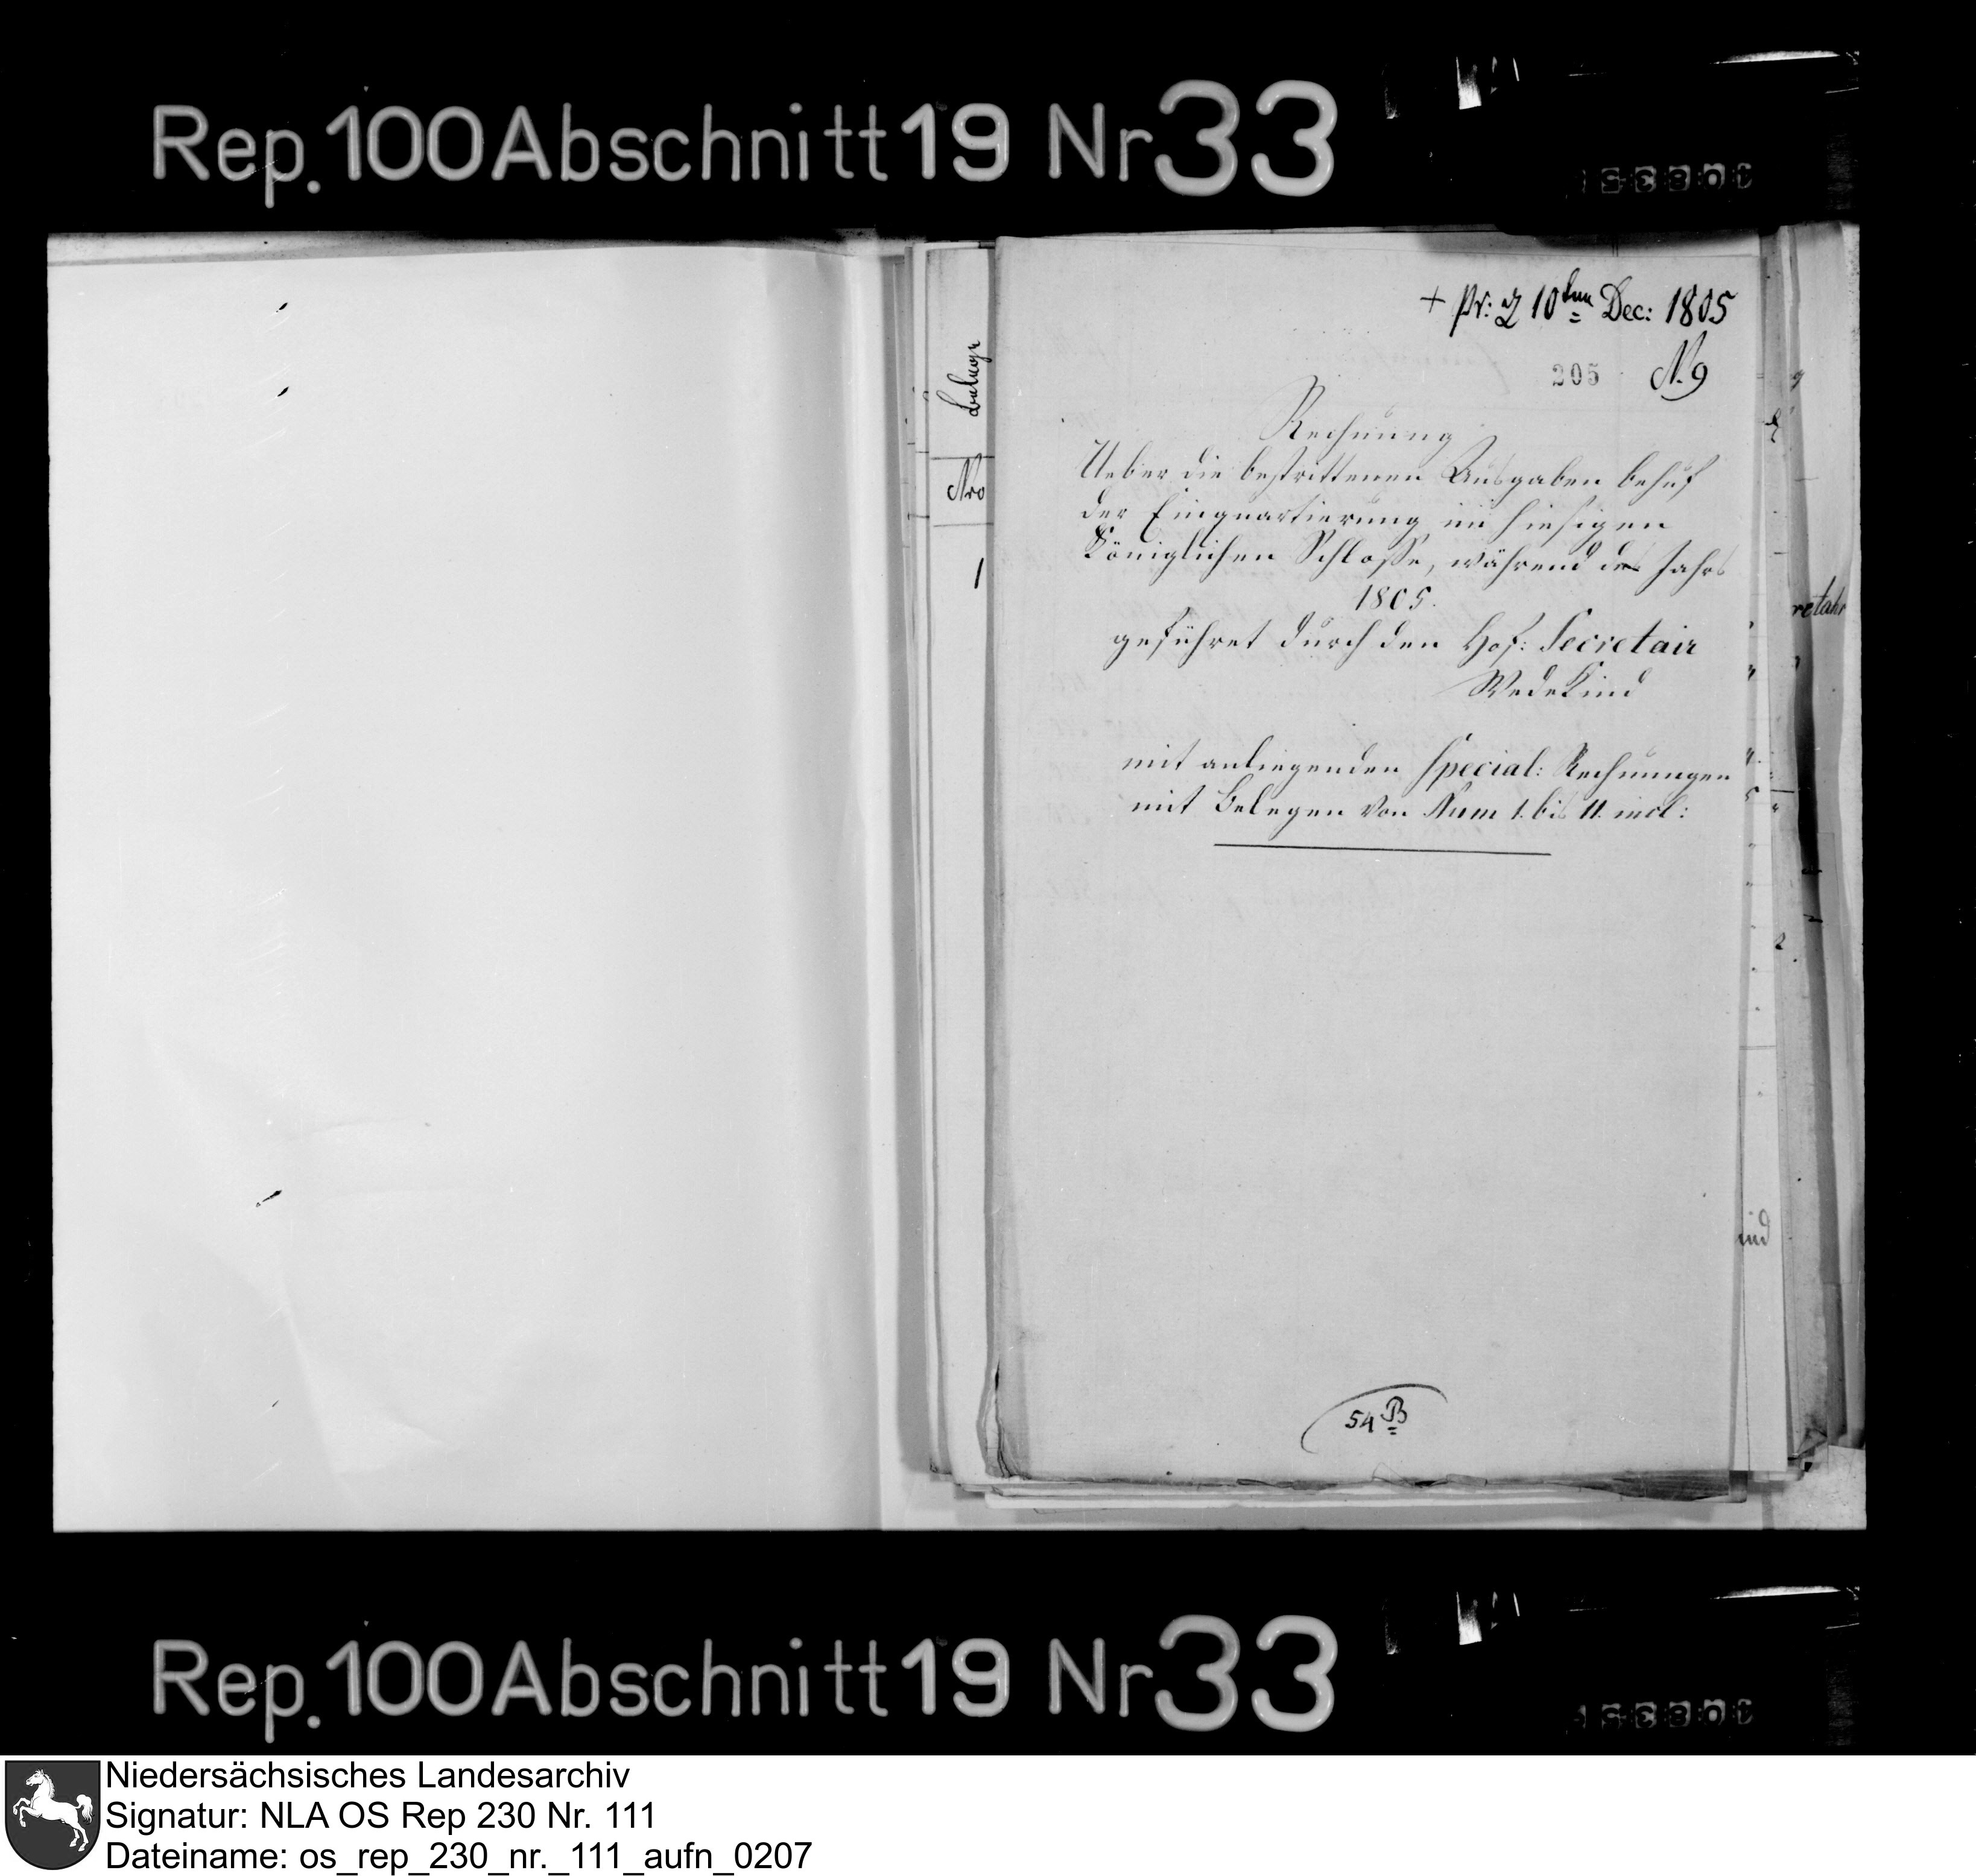 Rep. 100 Abschnitt 19 Nr 33
Belege
Nro
1
+ pr: 2 10ten Dec: 1805
205 N. 9
Rechnung
Ueber die bestrittenen Ausgaben behuf
der Einquartierung im hiesigen
Königlichen Schlosse, während des Jahrs
1805.
geführet durch den Hof: Secretair
Wedekind
mit anliegenden Special: Rechnungen
mit Belegen von Num 1. bis 11. incl:
54 B
Rep. 100 Abschnitt 19 Nr 33
Niedersächsisches Landesarchiv
Signatur: NLA OS Rep 230 Nr. 111
Dateiname: os_rep_230_nr._111_aufn_0207